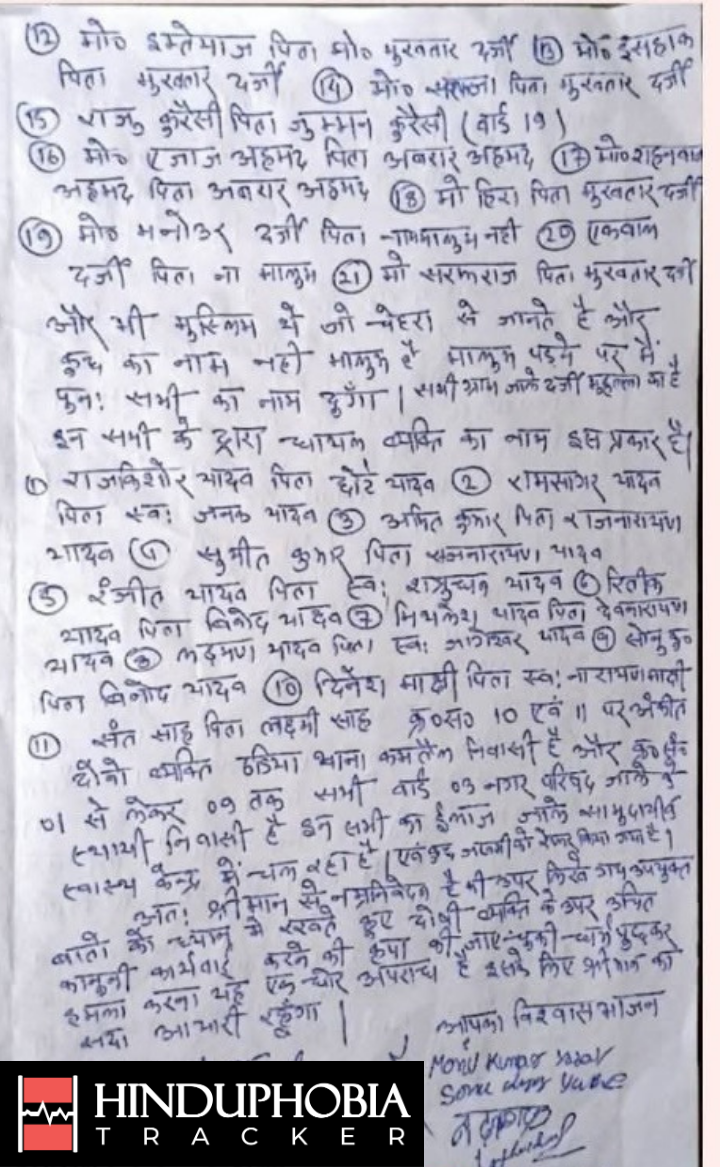 (12) मो० इम्तेयाज पिता मो० मुख्तार दर्जी (13) मो० इसहाक
पिता मुख्तार दर्जी (14) मो० पिता मुख्तार दर्जी
(15) राजु कुरैसी पिता जुम्मन कुरैसी (वार्ड 19)
(16) मो० एजाज अहमद पिता अबरार अहमद (17) मो० शहनवाज
अहमद पिता अबरार अहमद (18) मो हिरा पिता मुख्तार दर्जी
(19) मो० मनोउर दर्जी पिता नाम मालुम नही (20) एकबाल
दर्जी पिता ना मालुम (21) मो सरफराज पिता मुख्तार दर्जी
और भी मुस्लिम थे जो चेहरा से जानते है और
कुछ का नाम नही मालुम है मालुम पड़ने पर मैं
पुनः सभी का नाम दुँगा । सभी ग्राम जाले दर्जी मुहल्ला का है
इन सभी के द्वारा घायल व्यक्ति का नाम इस प्रकार है।
(1) राजकिशोर यादव पिता छोटे यादव (2) रामसागर यादव
पिता स्वः जनक यादव (3) अमित कुमार पिता राजनारायण
यादव (4) सुमीत कुमार पिता राजनारायण यादव
(5) रंजीत यादव पिता स्वः शत्रुघ्न यादव (6) रितीक
यादव पिता विनोद यादव (7) मिथलेश यादव पिता देवनारायण
यादव (8) लक्ष्मण यादव पिता स्वः जागेश्वर यादव (9) सोनु कु०
पिता विनोद यादव (10) दिनेश माझी पिता स्वः नारायण माझी
(11) संत साह पिता लक्ष्मी साह क्र०स० 10 एवं 11 पर अंकीत
दोनो व्यक्ति थाना कमतौल निवासी है और क्र०सं०
01 से लेकर 09 तक सभी वार्ड 03 नगर परिषद जाले के
स्थायी निवासी है इन सभी का ईलाज जाले सामुदायीक
स्वास्थ्य केन्द्र में चल रहा है । एवं कुछ जख्मी को रेफर किया गया है।
अतः श्रीमान से नम्र निवेदन है की उपर लिखे गए उपयुक्त
बातो को ध्यान में रखते हुए दोषी व्यक्ति के उपर उचित
कानुनी कार्यवाई करने की कृपा की जाए चुकी
हमला करना यह एक घोर अपराध है इसके लिए श्रीमान का
सदा आभारी रहुँगा ।
आपका विश्वास भाजन
Kumar Yadav
HINDUPHOBIA
TRACKER